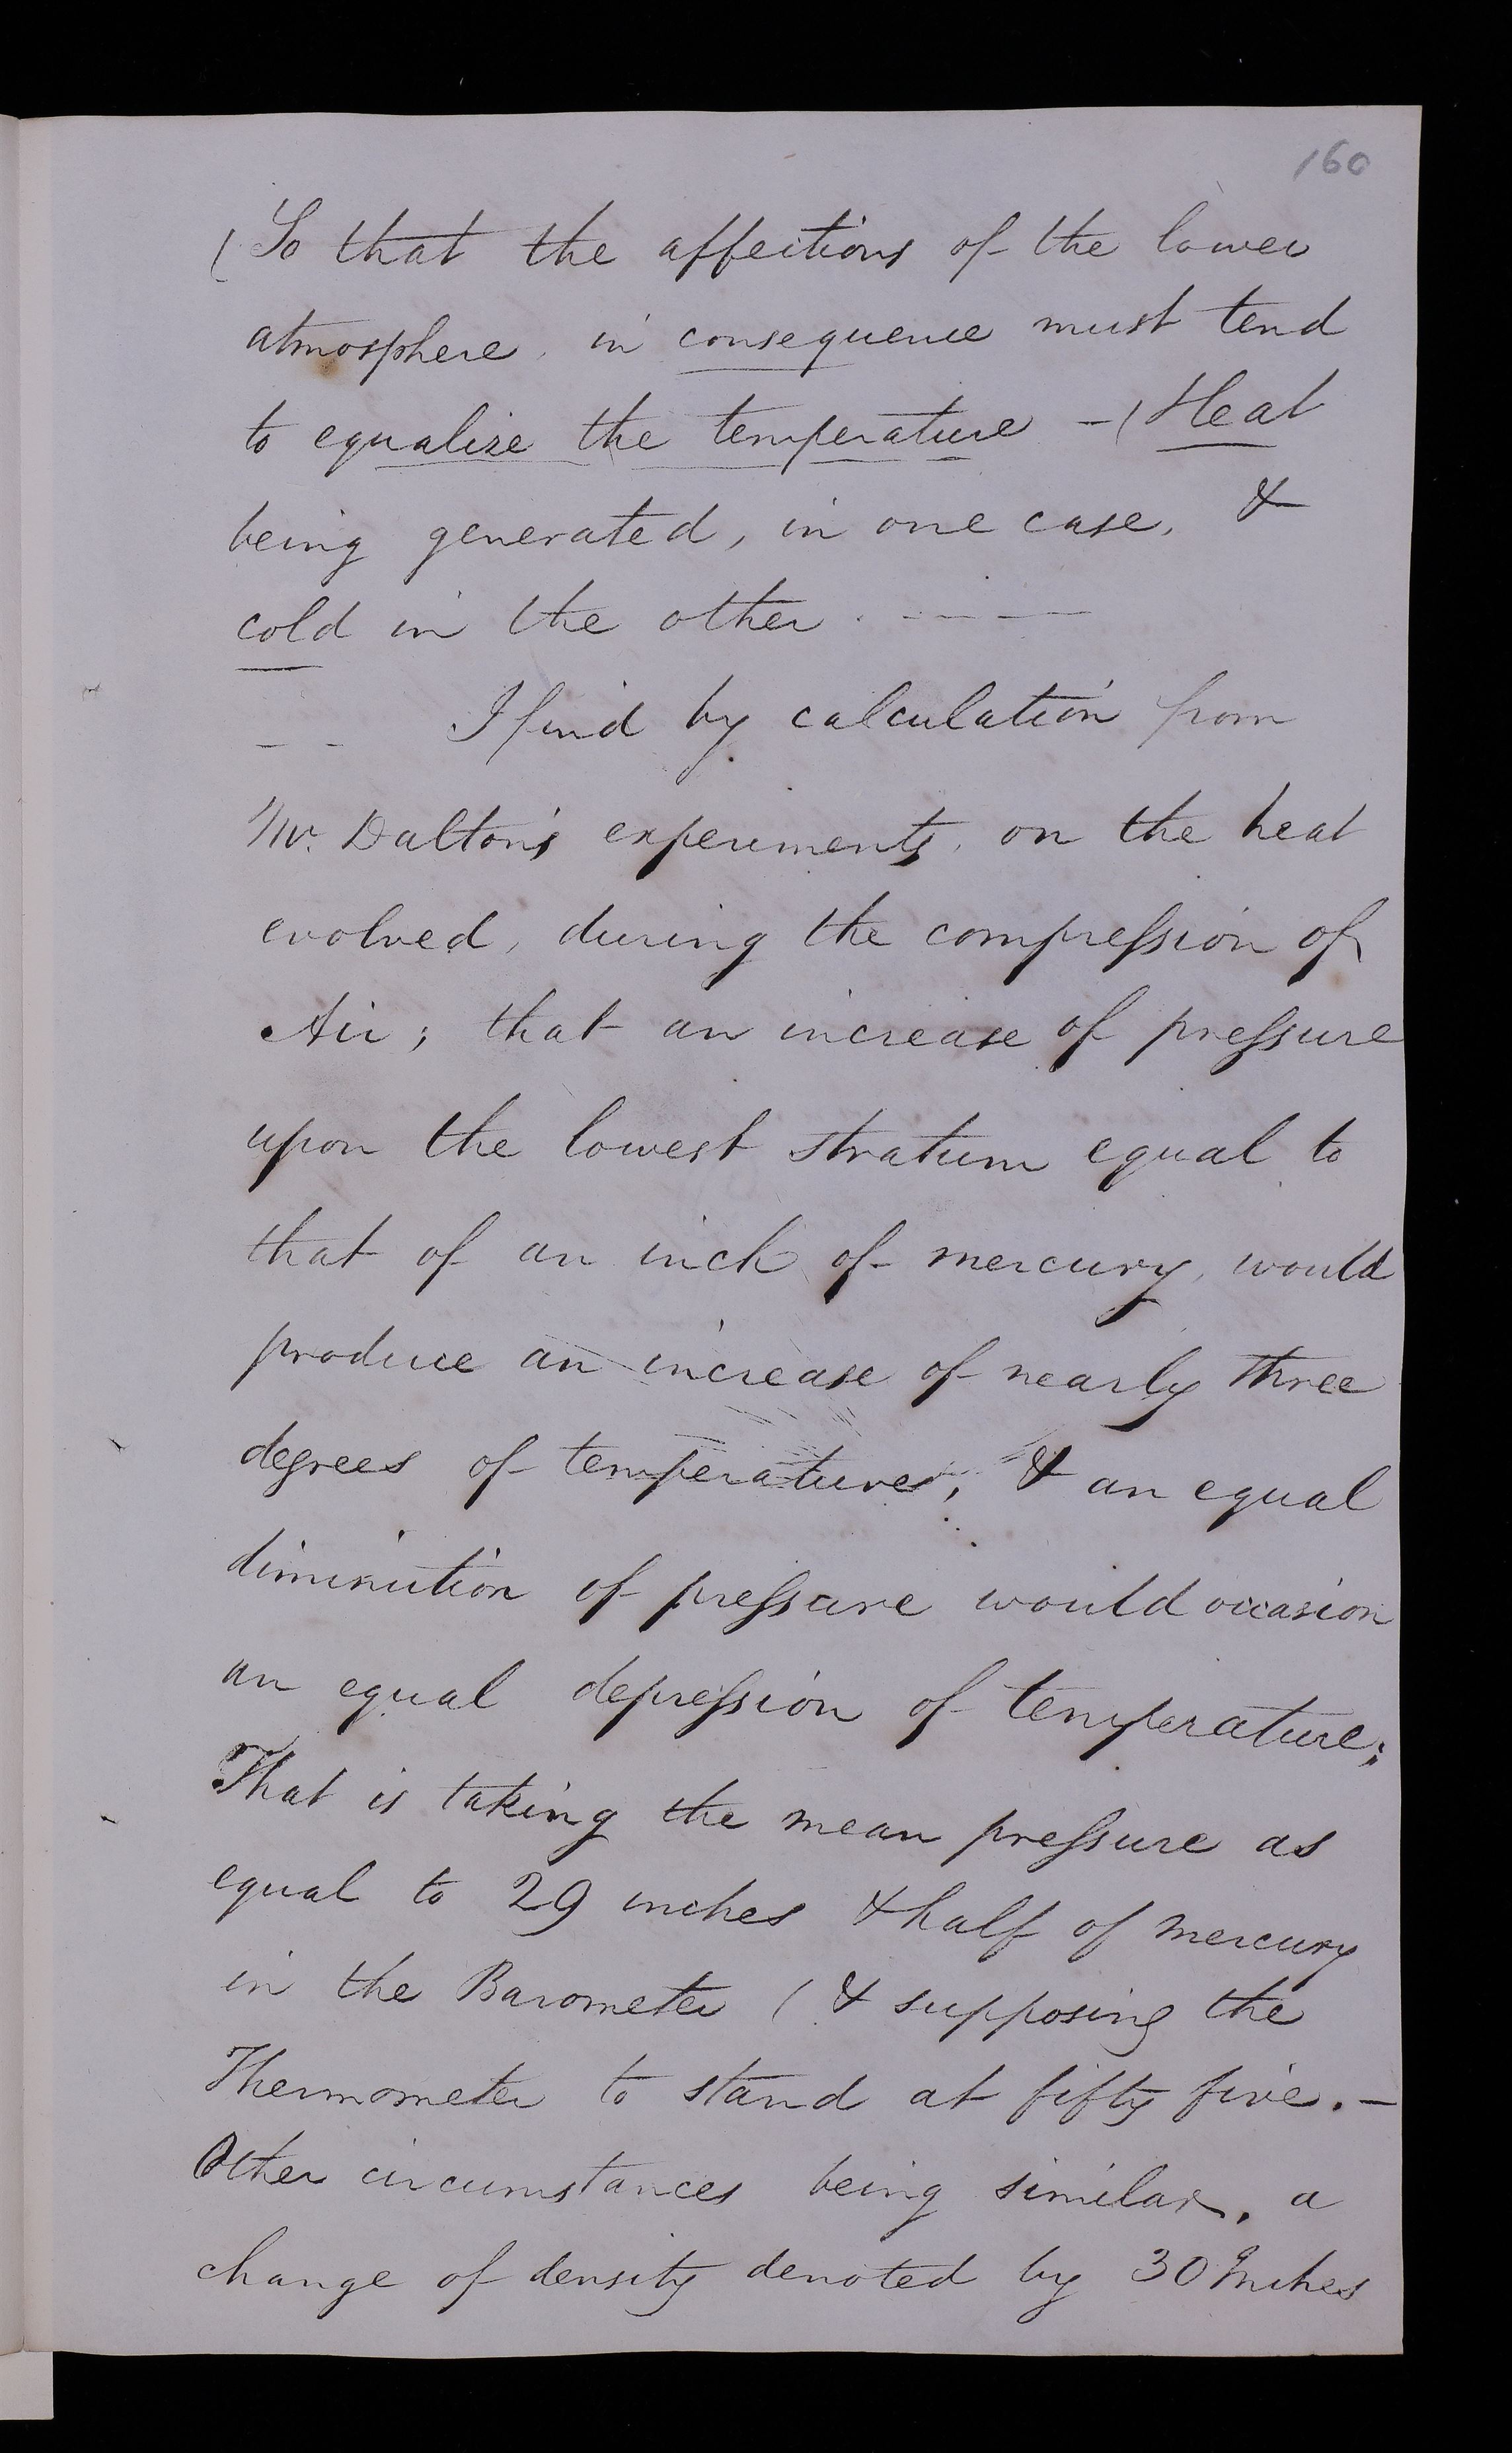 160
(So that the affections of the lower
atmosphere, in consequence must tend
to equalize the temperature - (Heat
being generated, in one case, &
cold in the other. - - -
- - I find by calculation from
Mr. Dalton's experiments, on the heat
evolved, during the compression of
Air; that an increase of pressure
upon the lowest stratum equal to
that of an inch of mercury, would
produce an increase of nearly three
degrees of temperatures; & an equal
diminution of pressure would occasion
an equal depression of temperature;
That is taking the mean pressure as
equal to 29 inches & half of mercury
in the Barometer (& supposing the
Thermometer to stand at fifty five. -
Other circumstances being similar, a
change of density denoted by 30 Inches